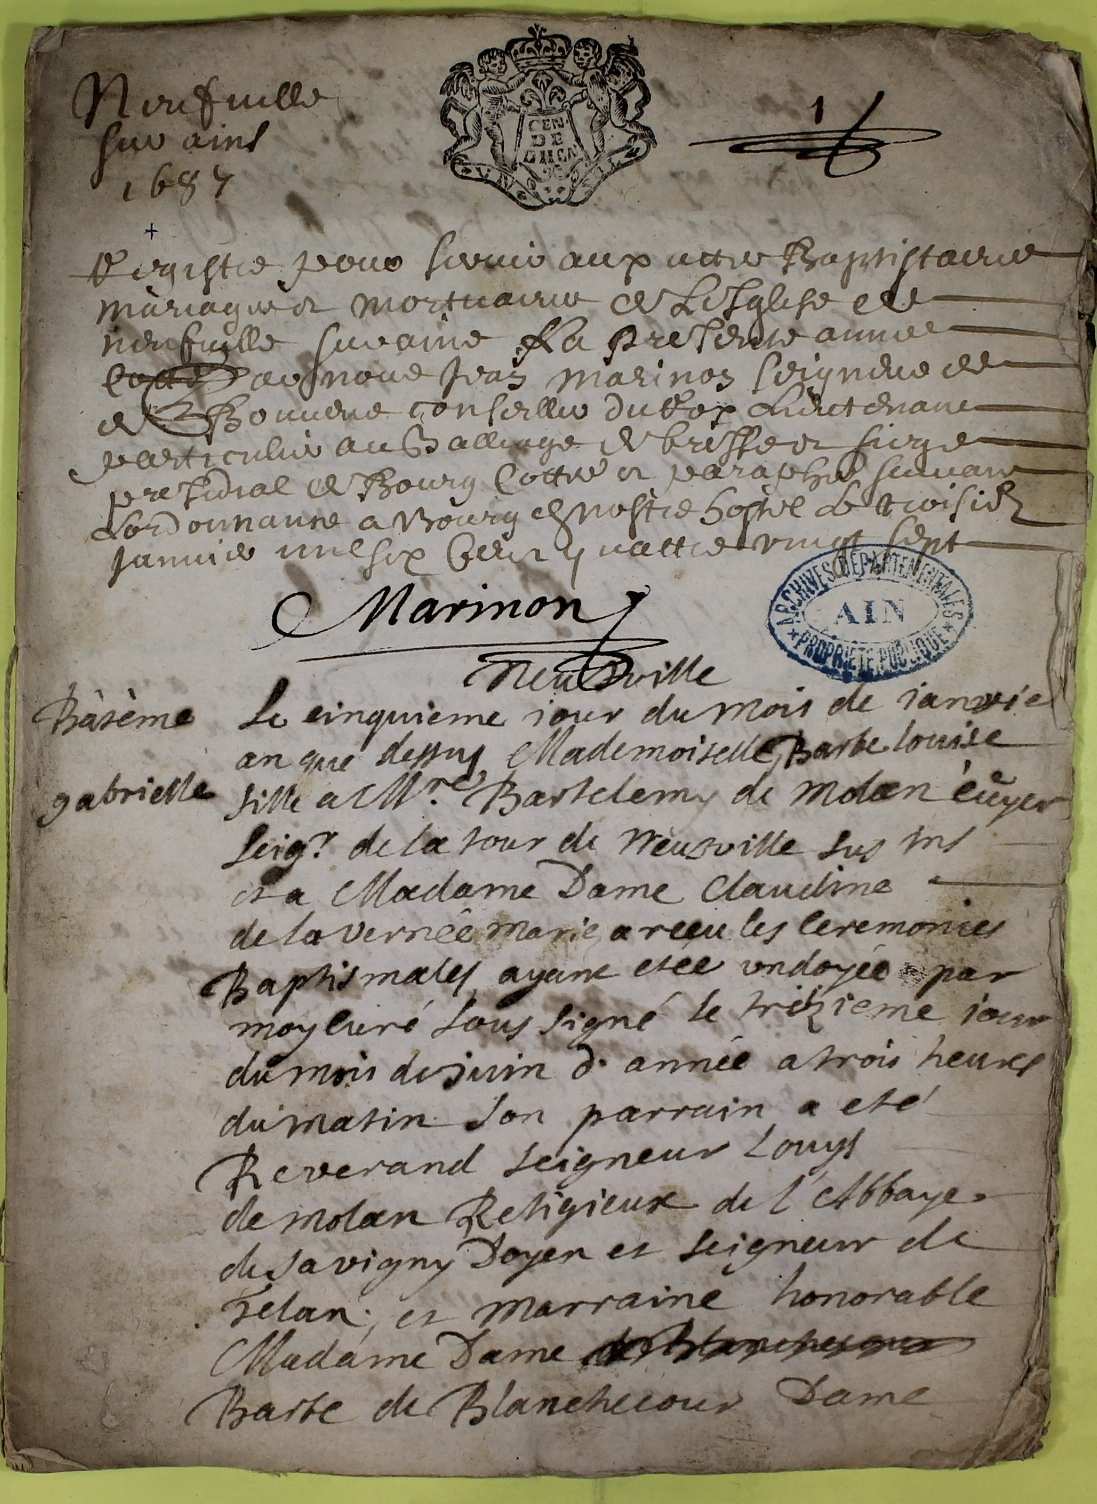 Neufville
sur ains
1687
1
GEN
DE
DHCN
VN SOL
Registre pour servir aux actes Baptistaire
mariage et mortuaire de L'Esglise de
neufville sur ains La presente année
Cotté par nous Jean Marinon seigneur de
de Bouvene conseiller du Roy Lieutenant
particulier au Balliage de bresse et siege
presidial de Bourg Cotté et paraphé suivant
Lordonnance a Bourg en nostre hostel Le troisie
Janvier mil six cent quattre vingt sept
Marinon
ARCHIVES DÉPARTEMENTALES
AIN
PROPRIÉTÉ PUBLIQUE
Neusville
Batême
gabrielle
Le cinquieme jour du mois de ianvie
an que dessus Mademoiselle Barbe louise
fille a Mre Bartelemy de molan écuyer
seigr de la tour de Neusville sus Ins
et a Madame Dame Claudine
de la vernée marie a receu les ceremonies
Baptismales ayant etee vndoyée par
moy curé sous signé le trezieme iour
du mois de juin d. année a trois heures
du matin son parrain a eté
Reverand seigneur Louys
de molan Religieux de l'Abbaye
de savigny Doyen et seigneur de
Telan, et marraine honorable
Madame Dame
Barbe de Blanchecour Dame